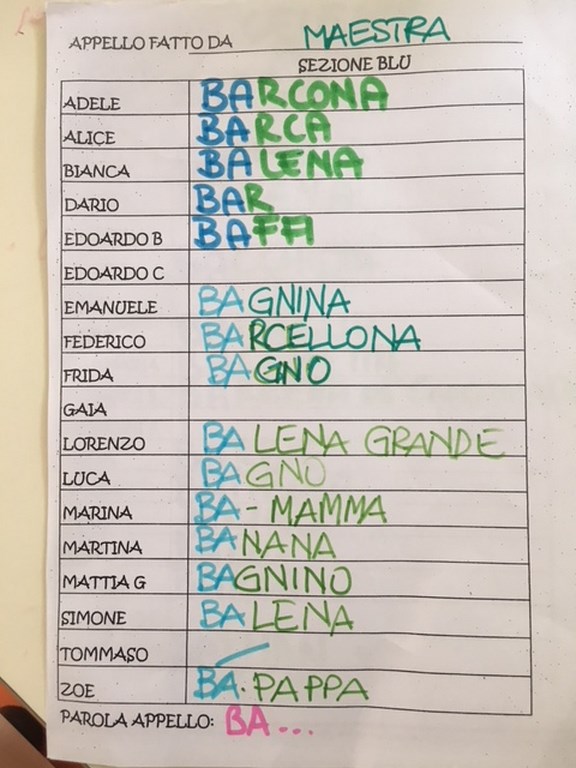 APPELLO FATTO DA MAESTRA
SEZIONE BLU
ADELE BARCONA
ALICE BARCA
BIANCA BALENA
DARIO BAR
EDOARDO B BAFFI
EDOARDO C
EMANUELE BAGNINA
FEDERICO BARCELLONA
FRIDA BAGNO
GAIA
LORENZO BA LENA GRANDE
LUCA BAGNO
MARINA BA - MAMMA
MARTINA BANANA
MATTIA G BAGNINO
SIMONE BALENA
TOMMASO
ZOE BA. PAPPA
PAROLA APPELLO: BA...